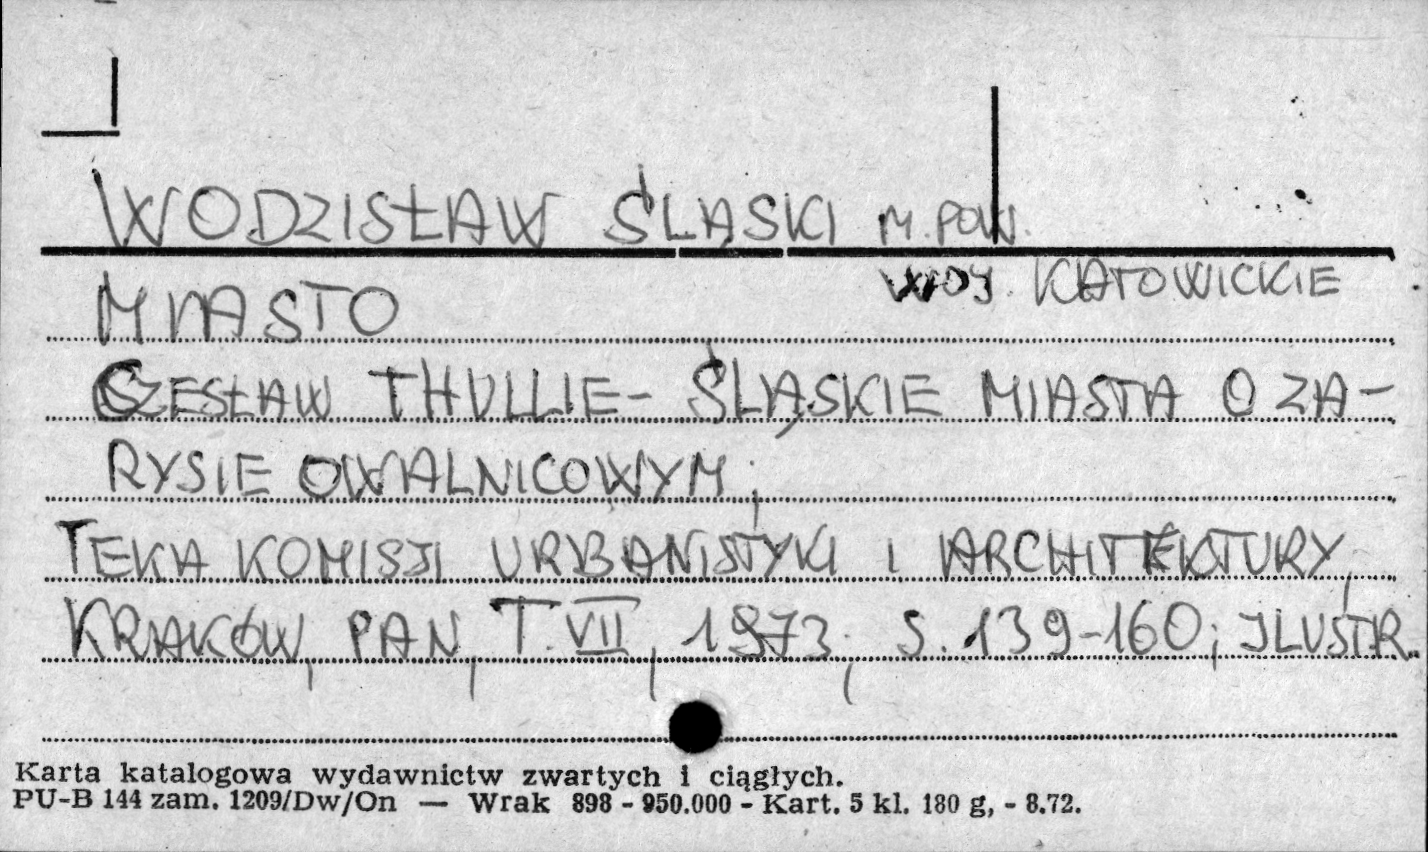 WODZISŁAW ŚLĄSKI M. POW.
WOJ. KATOWICKIE
MIASTO
CZESŁAW THULLIE - ŚLĄSKIE MIASTA O ZA-
RYSIE OWALNICOWYM;
TEKA KOMISJI URBANISTYKI I ARCHITEKTURY,
KRAKÓW, PAN, T. VII, 1973, S. 139-160; ILUSTR.
Karta katalogowa wydawnictw zwartych i ciągłych.
PU-B 144 zam. 1209/Dw/On — Wrak 898 - 950.000 - Kart. 5 kl. 180 g, - 8.72.